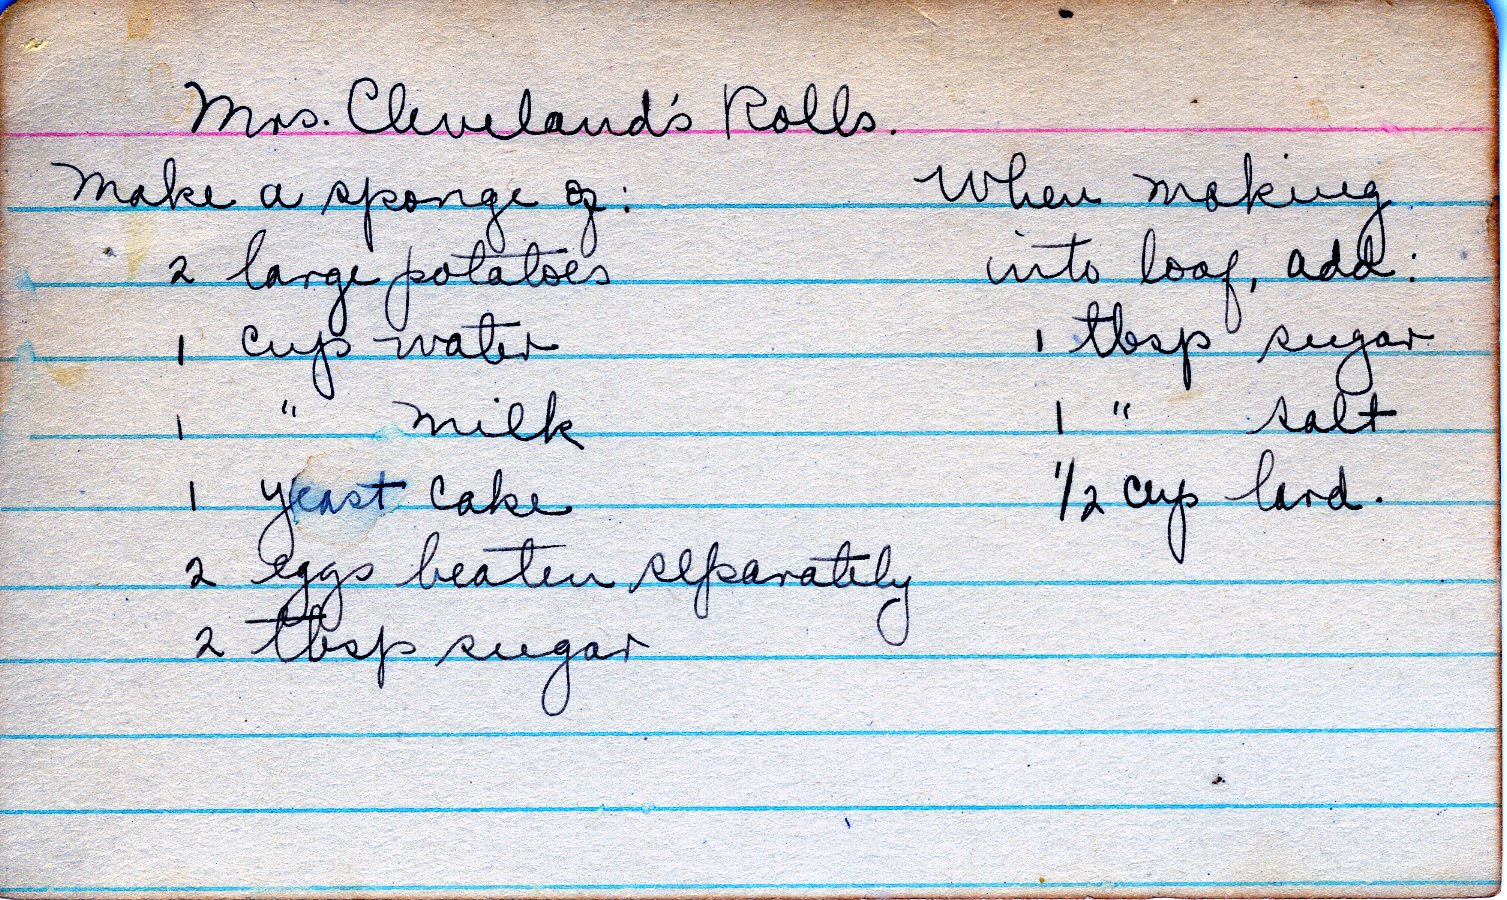 Mrs. Cleveland's Rolls.
Make a sponge of:
2 large potatoes
1 cup water
1 " milk
1 yeast cake
2 eggs beaten separately
2 tbsp sugar
When making
into loaf, add:
1 tbsp sugar
1 " salt
1/2 cup lard.